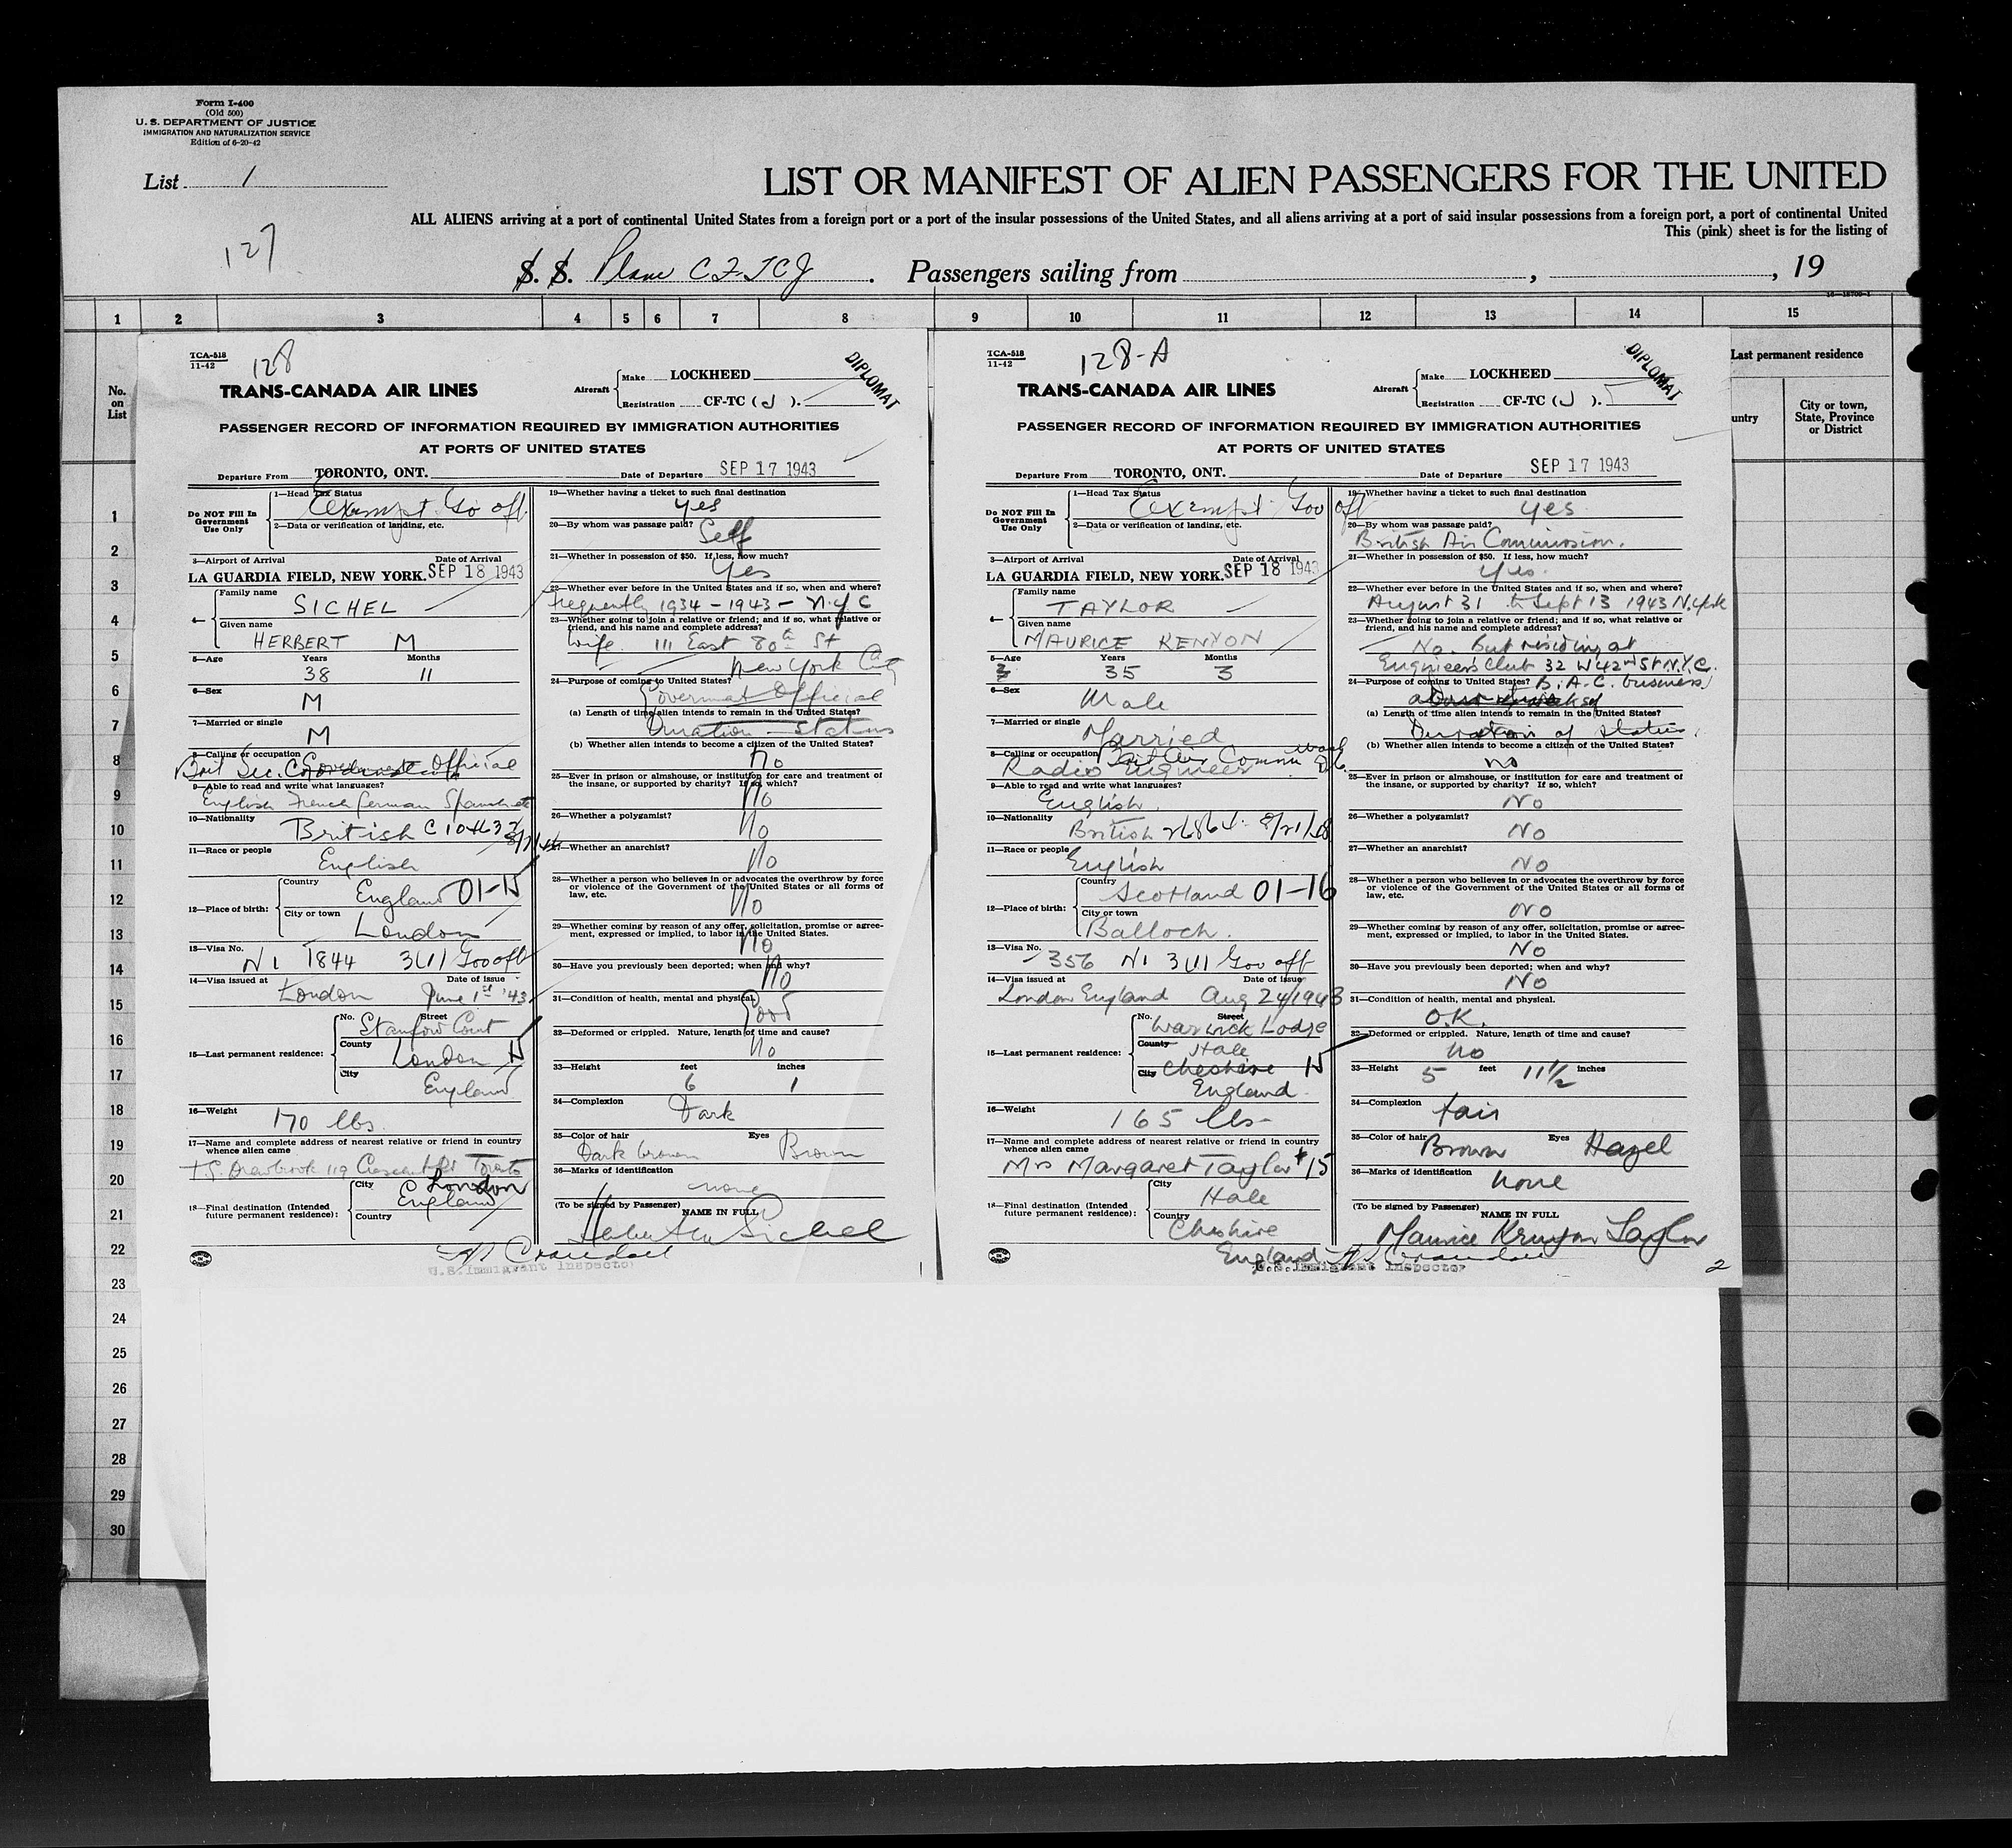 Form I-400
(Old 500)
U. S. DEPARTMENT OF JUSTICE
IMMIGRATION AND NATURALIZATION SERVICE
Edition of 6-20-42
List 1
127
LIST OR MANIFEST OF ALIEN PASSENGERS FOR THE UNITED
ALL ALIENS arriving at a port of continental United States from a foreign port or a port of the insular possessions of the United States, and all aliens arriving at a port of said insular possessions from a foreign port, a port of continental United
This (pink) sheet is for the listing of
S. S. Plane CF-TCJ. Passengers sailing from , , 19
1 2 3 4 5 6 7 8 9 10 11 12 13 14 15
No. on List
Last permanent residence
untry
City or town, State, Province or District
1
2
3
4
5
6
7
8
9
10
11
12
13
14
15
16
17
18
19
20
21
22
23
24
25
26
27
28
29
30
TCA-518
11-42
128
DIPLOMAT
TRANS-CANADA AIR LINES
Aircraft Make LOCKHEED
Registration CF-TC (J).
PASSENGER RECORD OF INFORMATION REQUIRED BY IMMIGRATION AUTHORITIES
AT PORTS OF UNITED STATES
Departure From TORONTO, ONT. Date of Departure SEP 17 1943
Do NOT Fill In Government Use Only
1—Head Tax Status
Exempt Gov off
2—Data or verification of landing, etc.
3—Airport of Arrival Date of Arrival
LA GUARDIA FIELD, NEW YORK. SEP 18 1943
4— Family name
SICHEL
Given name
HERBERT M
5—Age Years Months
38 11
6—Sex
M
7—Married or single
M
8—Calling or occupation
Brit Sec. Co Government Official
9—Able to read and write what languages?
English French German Spanish etc
10—Nationality
British
11—Race or people
English
12—Place of birth: Country
England 01-15
City or town
London
13—Visa No.
N1 1844 3(1) Gov off
14—Visa issued at Date of issue
London June 1st '43
15—Last permanent residence: No. Street
Court
County
London
City
England
16—Weight
170 lbs.
17—Name and complete address of nearest relative or friend in country whence alien came
119 Crescent Rd Toronto
18—Final destination (Intended future permanent residence): City
London
England
Country
19—Whether having a ticket to such final destination
Yes
20—By whom was passage paid?
Self
21—Whether in possession of $50. If less, how much?
Yes
22—Whether ever before in the United States and if so, when and where?
Frequently 1934 - 1943 - N.Y.C
23—Whether going to join a relative or friend; and if so, what relative or friend, and his name and complete address?
Wife 111 East 80th St
New York City
24—Purpose of coming to United States?
Government Official
(a) Length of time alien intends to remain in the United States?
Duration Status
(b) Whether alien intends to become a citizen of the United States?
No
25—Ever in prison or almshouse, or institution for care and treatment of the insane, or supported by charity? If so, which?
No
26—Whether a polygamist?
No
27—Whether an anarchist?
No
28—Whether a person who believes in or advocates the overthrow by force or violence of the Government of the United States or all forms of law, etc.
No
29—Whether coming by reason of any offer, solicitation, promise or agreement, expressed or implied, to labor in the United States.
No
30—Have you previously been deported; when and why?
No
31—Condition of health, mental and physical.
Good
32—Deformed or crippled. Nature, length of time and cause?
No
33—Height feet inches
6 1
34—Complexion
Dark
35—Color of hair Eyes
Dark brown Brown
36—Marks of identification
none
(To be signed by Passenger) NAME IN FULL
Herbert M Sichel
U.S. Immigrant Inspector
1
TCA-518
11-42
128-A
DIPLOMAT
TRANS-CANADA AIR LINES
Aircraft Make LOCKHEED
Registration CF-TC (J).
PASSENGER RECORD OF INFORMATION REQUIRED BY IMMIGRATION AUTHORITIES
AT PORTS OF UNITED STATES
Departure From TORONTO, ONT. Date of Departure SEP 17 1943
Do NOT Fill In Government Use Only
1—Head Tax Status
Exempt Gov off
2—Data or verification of landing, etc.
3—Airport of Arrival Date of Arrival
LA GUARDIA FIELD, NEW YORK. SEP 18 1943
4— Family name
TAYLOR
Given name
MAURICE KENYON
5—Age Years Months
35 3
6—Sex
Male
7—Married or single
Married
8—Calling or occupation
Brit Air Comm Wash D.C.
Radio Engineer
9—Able to read and write what languages?
English
10—Nationality
British
11—Race or people
English
12—Place of birth: Country
Scotland 01-16
City or town
Balloch.
13—Visa No.
356 N1 3(1) Gov off
14—Visa issued at Date of issue
London England Aug 24/1943
15—Last permanent residence: No. Street
Warwick Lodge
County
Hale
City
Cheshire 15
England
16—Weight
165 lbs-
17—Name and complete address of nearest relative or friend in country whence alien came
Mrs Margaret Taylor #15
18—Final destination (Intended future permanent residence): City
Hale
Country
Cheshire
England
19—Whether having a ticket to such final destination
Yes
20—By whom was passage paid?
British Air Commission.
21—Whether in possession of $50. If less, how much?
Yes.
22—Whether ever before in the United States and if so, when and where?
August 31 to Sept 13 1943 N.York
23—Whether going to join a relative or friend; and if so, what relative or friend, and his name and complete address?
No. But residing at
Engineers Club 32 W 42nd St N.Y.C.
24—Purpose of coming to United States? B.A.C. business
(a) Length of time alien intends to remain in the United States?
Duration of Status
(b) Whether alien intends to become a citizen of the United States?
No
25—Ever in prison or almshouse, or institution for care and treatment of the insane, or supported by charity? If so, which?
No
26—Whether a polygamist?
No
27—Whether an anarchist?
No
28—Whether a person who believes in or advocates the overthrow by force or violence of the Government of the United States or all forms of law, etc.
No
29—Whether coming by reason of any offer, solicitation, promise or agreement, expressed or implied, to labor in the United States.
No
30—Have you previously been deported; when and why?
No
31—Condition of health, mental and physical.
O.K.
32—Deformed or crippled. Nature, length of time and cause?
No
33—Height 5 feet 11 1/2 inches
34—Complexion
fair
35—Color of hair Brown Eyes Hazel
36—Marks of identification
None
(To be signed by Passenger) NAME IN FULL
Maurice Kenyon Taylor
U.S. Immigrant Inspector
2